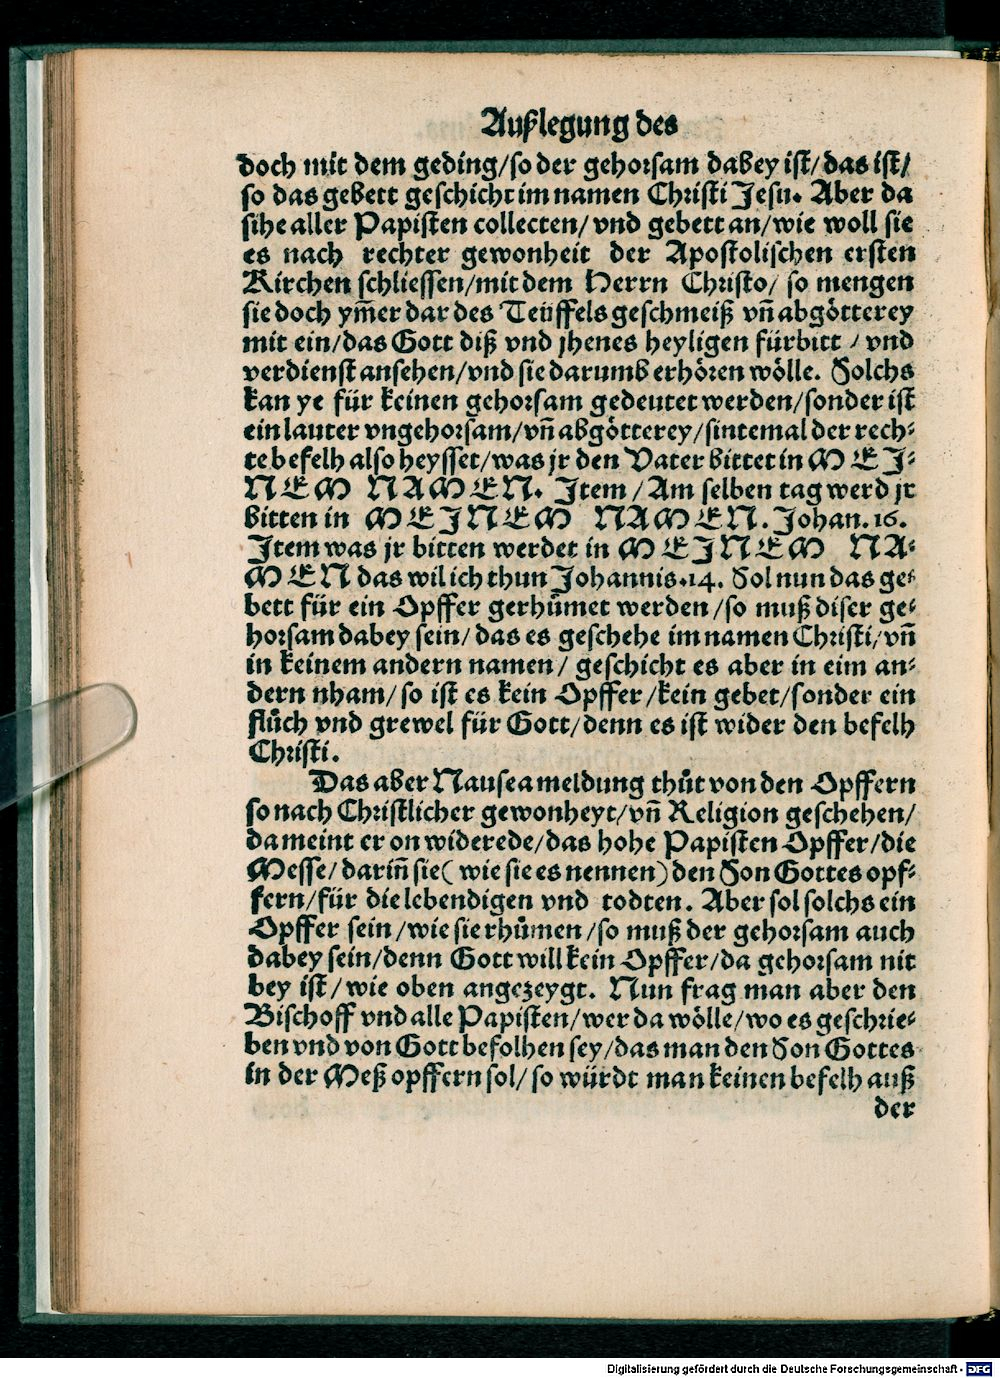 Außlegung des
doch mit dem geding/so der gehorsam dabey ist/das ist/
so das gebett geschicht im namen Christi Jesu. Aber da
sihe aller Papisten collecten/vnd gebett an/wie woll sie
es nach rechter gewonheit der Apostolischen ersten
Kirchen schliessen/mit dem Herrn Christo/ so mengen
sie doch ym̃er dar des Teüffels geschmeiß vñ abgötterey
mit ein/das Gott diß vnd jhenes heyligen fürbitt / vnd
verdienst ansehen/vnd sie darumb erhören wölle. Solchs
kan ye für keinen gehorsam gedeutet werden/sonder ist
ein lauter vngehorsam/vñ abgötterey/sintemal der rech⸗
te befelh also heysset/was jr den Vater bittet in MEJ⸗
NEM NAMEN. Jtem / Am selben tag werd jr
bitten in MEJNEM NAMEN. Johan. 16.
Jtem was jr bitten werdet in MEJNEM NA⸗
MEN das wil ich thun Johannis.14. Sol nun das ge⸗
bett für ein Opffer gerhůmet werden/so muß diser ge⸗
horsam dabey sein/das es geschehe im namen Christi/vñ
in keinem andern namen/ geschicht es aber in eim an⸗
dern nham/so ist es kein Opffer/kein gebet/sonder ein
flůch vnd grewel für Gott/denn es ist wider den befelh
Christi.
Das aber Nausea meldung thůt von den Opffern
so nach Christlicher gewonheyt/vñ Religion geschehen/
da meint er on widerede/das hohe Papisten Opffer/die
Messe/darin̄ sie( wie sie es nennen)den Son Gottes opf⸗
fern/für die lebendigen vnd todten. Aber sol solchs ein
Opffer sein/wie sie rhůmen/so muß der gehorsam auch
dabey sein/denn Gott will kein Opffer/da gehorsam nit
bey ist/wie oben angezeygt. Nun frag man aber den
Bischoff vnd alle Papisten/wer da wölle/wo es geschrie⸗
ben vnd von Gott befolhen sey/das man den Son Gottes
in der Meß opffern sol/ so würdt man keinen befelh auß
der
Digitalisierung gefördert durch die Deutsche Forschungsgemeinschaft - DFG